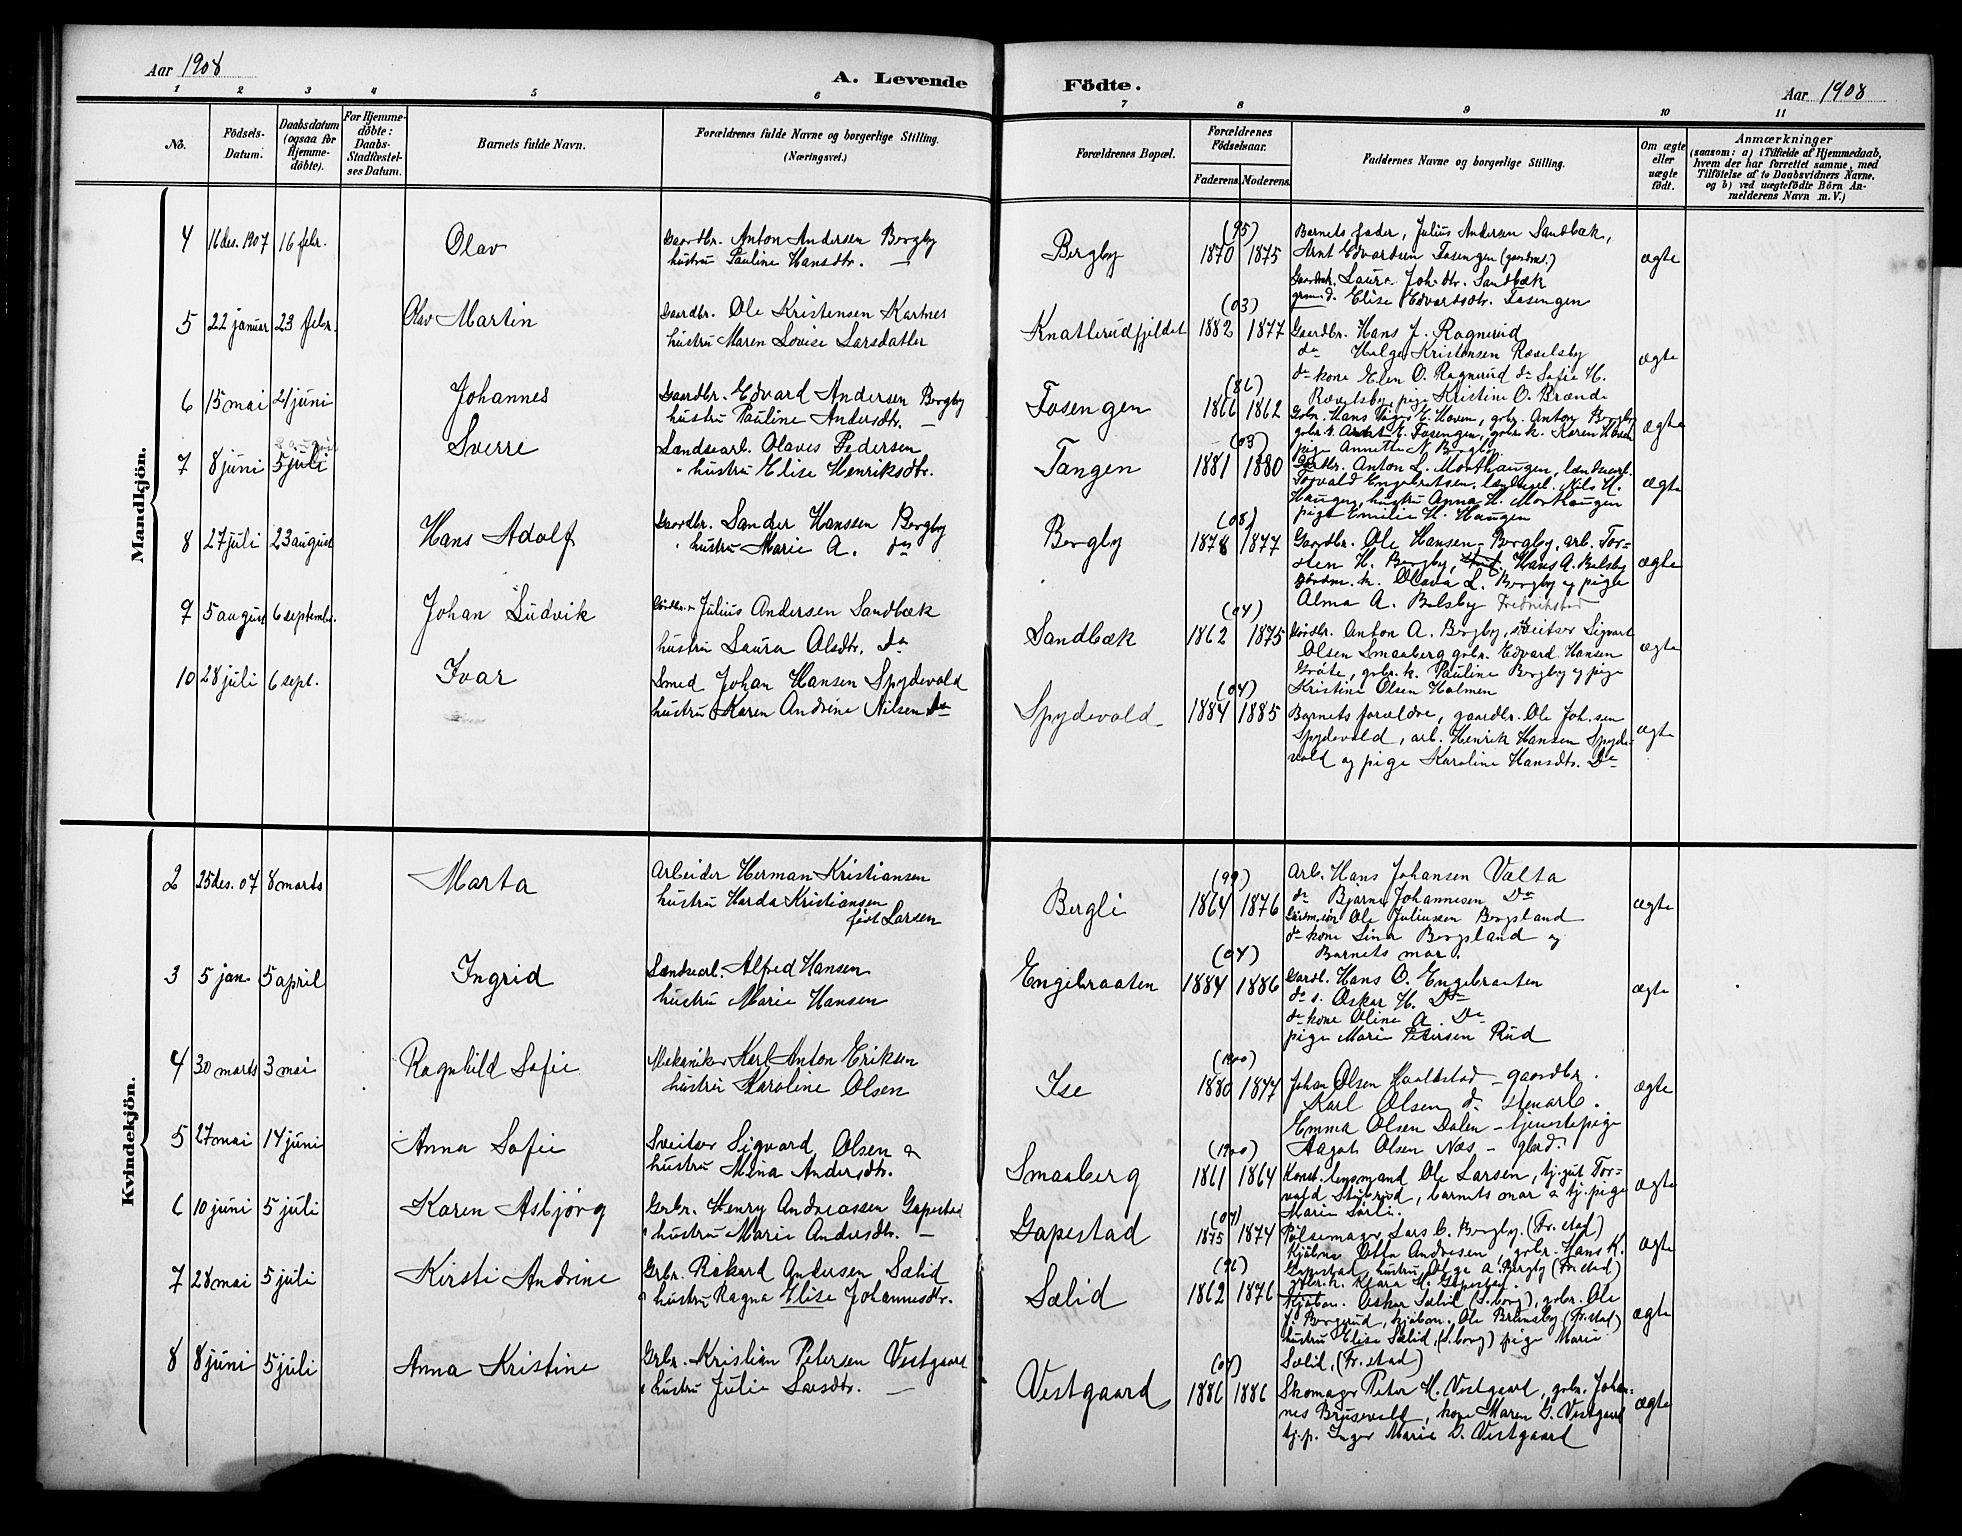 Aar 1908
A. Levende
Födte.
Aar 1908
1 2 3 4 5 6 7 8 9 10 11
No.
Födsels-Datum.
Daabsdatum (ogsaa för Hjemmedöbte).
For Hjemmedöbte: Daabs-Stadfæstelses Datum.
Barnets fulde Navn.
Forældrenes fulde Navne og borgerlige Stilling. (Næringsvei.)
Forældrenes Bopæl.
Forældrenes Födselsaar.
Faderens. Moderens.
Faddernes Navne og borgerlige Stilling.
Om ægte eller uægte födt.
Anmærkninger
(saasom: a) i Tilfælde af Hjemmedaab, hvem der har forrettet samme, med Tilföielse af to Daabsvidners Navne, og b) ved uægtefödte Börn Anmelderens Navn m. V.)
Mandkjön.
4 16 des. 1907 16 febr. Olav
Gaardbr. Anton Andersen Bergby
hustru Pauline Hansdtr. —
Bergby (95) 1870 1875
Barnets fader, Julius Andersen Sandbæk,
Arnt Edvardsen Fosengen (gaardms.)
Laura Joh.dtr. Sandbæk
Elise Edvardsdtr. Fosengen
ægte
5 22 januar 23 febr. Olav Martin
Gaardbr. Ole Kristensen Kartnes
hustru Maren Lovise Larsdatter
Knatterudfjeldet (03) 1882 1877
Gaardbr. Hans J. Ragnerud
do Helge Kristensen Rævelsby
do kone Elen O. Ragnerud do Sofie H.
Rævelsby, pige Kristine O. Brende
ægte
6 15 mai 21 juni Johannes
Gaardbr. Edvard Andersen Bergby
hustru Pauline Andersdtr. —
Fosengen (86) 1866 1862
Grbr. Hans E. Haven, grbr. Anton Bergby
grbr. k. E. Fosengen, grbr. k. Karen Haven
pige Annette N. Bergby
ægte
7 8 juni 5 juli Sverre
Landsearb. Olaves Pedersen
hustru Elise Henriksdtr.
Tangen (03) 1881 1880
Gardbr. Anton L. Morthaugen, landsearb.
Torvald Engebretsen, Nils H.
Haugen, hustru Anna H. Morthaugen
pige Emilie H. Haugen
ægte
8 27 juli 23 august Hans Adolf
Gaardbr. Sander Hanssen Bergby
hustru Marie A. do
Bergby (08) 1878 1877
Gaardbr. Ole Hansen Bergby, arb. Tor-
sten H. Bergby, Hans A. Belsby
k. Olava L. Bergby og pige
Alma A. Belsby Fredrikstad
ægte
9 5 august 6 septembr. Johan Ludvik
Gårdbr. Julius Andersen Sandbæk
hustru Laura Olsdtr. do
Sandbæk (04) 1862 1875
Gårdbr. Anton A. Bergby, sveitser Sigvart
Olsen Smaaberg grbr. Edvard Hansen
Gröte, grbr. k. Pauline Bergby og pige
Kristine Olsen Holmen
ægte
10 28 juli 6 sept. Ivar
Smed Johan Hansen Spydevold
hustru Karen Andrine Nilsen do
Spydevold (04) 1884 1885
Barnets forældre, gaardbr. Ole Joh.sen
Spydevold, arb. Henrik Hansen Spyde-
vold og pige Karoline Hansdtr. Do
ægte
Kvindekjön.
2 25 des. 07 8 marts Marta
Arbeider Herman Kristiansen
hustru Harda Kristiansen
född Larsen
Bergli (99) 1864 1876
Arb. Hans Johansen Valta
do Bjarne Johannesen Do
Ole Juliussen Bergsland
do kone Lina Bergsland og
Barnets mor.
ægte
3 5 jan. 5 april Ingrid
Landsearb. Alfred Hansen
hustru Marie Hansen
Engebraaten (04) 1884 1886
Gardb. Hans O. Engebraaten
do s. Oskar H. Do
do kone Oline A. Do
pige Marie Petersen Rud
ægte
4 30 marts 3 mai Ragnhild Sofie
Mekaniker Karl Anton Eriksen
hustru Karoline Olsen
Ise (1900) 1880 1877
Johan Olsen Haabestad — gaardbr.
Karl Olsen do stenarb.
Emma Olsen Dalen — tjenestepige
Aagot Olsen Næs —
ægte
5 27 mai 14 juni Anna Sofie
Sveitser Sigvard Olsen &
hustru Mina Andersdtr.
Smaaberg (1900) 1861 1864
Konst. lensmand Ole Larsen, tj.gut Tor-
vald Stubrud, barnets mor & tj. pige
Marie Sørli.
ægte
6 10 juni 5 juli Karen Asbjørg
Grbr. Henry Andreassen Gapestad
hustru Marie Andersdtr. —
Gapestad (07) 1875 1874
Pølsemager Lars C. Bergby. (Fr.stad)
Otto Andresen, grbr. Hans K.
Gapestad, hustru Olga A. Bergby (Fr.stad)
grbr. k. Klara H. Gapestad.
ægte
7 28 mai 5 juli Kirsti Andrine
Grbr. Rikard Andersen Sælid
hustru Ragna Elise Johannesdtr.
Sælid (96) 1862 1876
Kjøbm. Oskar Sælid (S.borg), grbr. Ole
J. Borgerud, kjøbm. Ole Brunsby (Fr.stad)
hustru Elise Sælid, (S.borg) pige Marie
Sælid, (Fr.stad)
ægte
8 8 juni 5 juli Anna Kristine
Grbr. Kristian Petersen Vestgaard
hustru Julie Larsdtr. —
Vestgaard (07) 1886 1886
Skomager Peter M. Vestgaard, grbr. Johan-
nes Brusevold, kone Maren G. Vestgaard
tj.p. Inger Marie D. Vestgaard
ægte